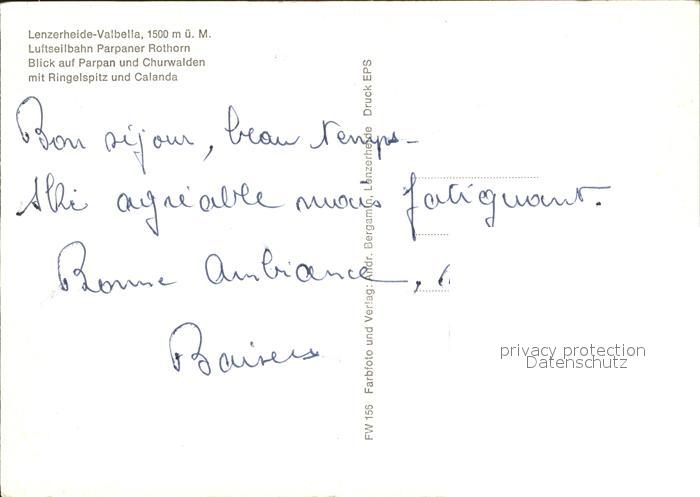 Lenzerheide-Valbella, 1500 m ü. M.
Luftseilbahn Parpaner Rothorn
Blick auf Parpan und Churwalden
mit Ringelspitz und Calanda
Bon séjour, beau temps-
Ski agréable mais fatiguant.
Bonne Ambiance,
Baisers
FW 156 Farbfoto und Verlag: Andr. Bergamin, Lenzerheide Druck EPS
privacy protection
Datenschutz